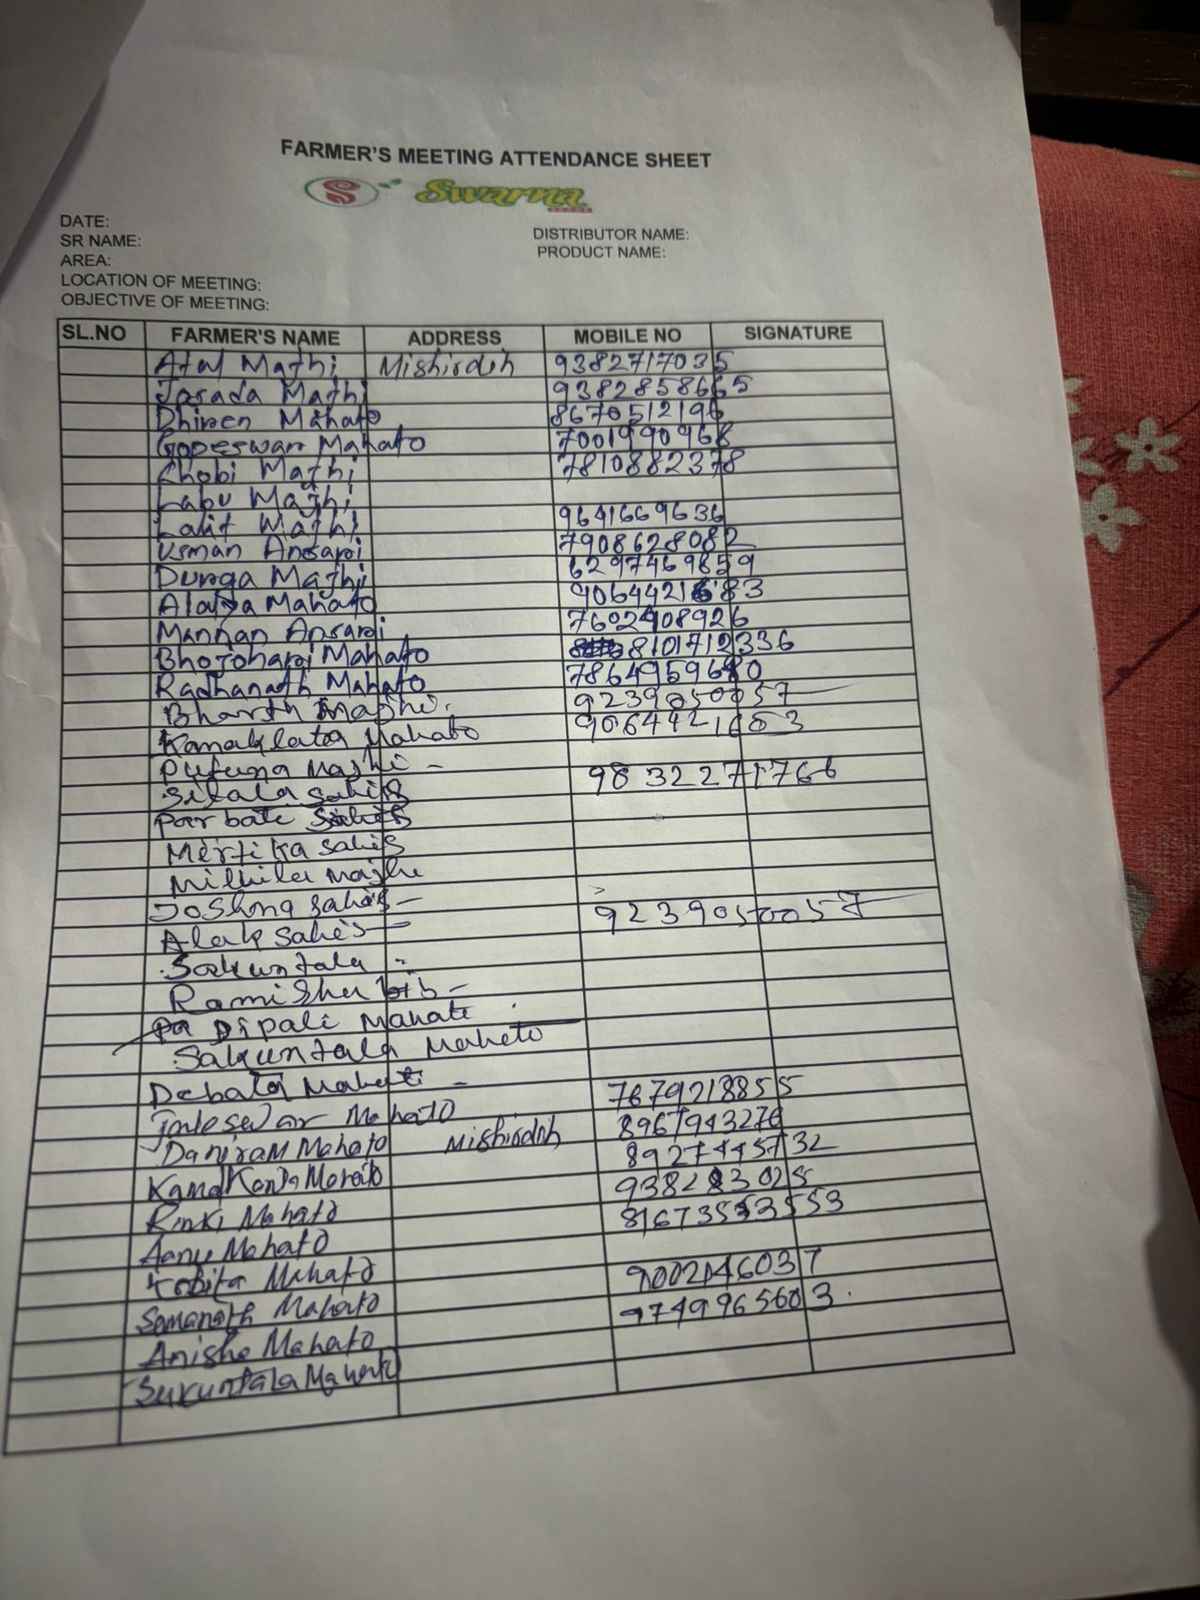 FARMER'S MEETING ATTENDANCE SHEET
S Swarna
DATE:
SR NAME:
DISTRIBUTOR NAME:
AREA:
PRODUCT NAME:
LOCATION OF MEETING:
OBJECTIVE OF MEETING:
SL.NO FARMER'S NAME ADDRESS MOBILE NO SIGNATURE
Atal Majhi Mishirdih 9382717035
Jasada Majhi 9382858665
Dhiren Mahato 8670512196
Gopeswar Mahato 7001990968
Chobi Majhi 7810882378
Labu Majhi
Lalit Majhi 9641669636
Usman Ansari 7908628082
Durga Majhi 6297469859
Alaka Mahato 9064421683
Mannan Ansari 7602908926
Bhojohari Mahato 8101712336
Radhanath Mahato 7864959680
Bharth Majhi. 9239050057
Kanaklata Mahato 9064421603
Purna Majhi -
Sitala Sahis 9832271766
Parbati Sahis
Mertika Sahis
Milila Majhi
Joshna Sahis -
Alak Sahis - 9239050057
Sakuntala "
Ramisha bib -
Dipali Mahato
Sakuntala Maheto
Debala Mahato -
Mahato 7679218855
Daniram Mahato Mishirdih 8967943276
Kamal Kanta Mahato 8927445732
Rinki Mahato
Mahato 8167353553
Kobita Mahato
Somanath Mahato 9002146037
Anisha Mahato 9749965603.
Sukuntala Mahato